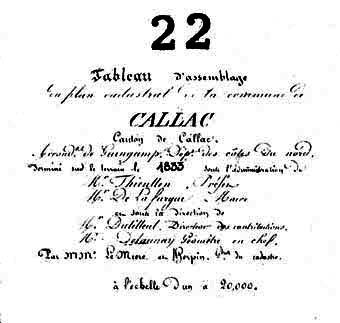 22
Tableau d'assemblage
du plan cadastral de la commune de
CALLAC
Canton de Callac.
Arrond.t de Guingamp, Dép.t des côtes du nord.
Terminé sur le terrain le 1833 sous l'administration de
Mr. Thieullen Préfet
Mr. De La fargue Maire
et sous la direction de
Mr. Dutilleul, Directeur des contributions.
Mr. Delaunay Géomètre en chef.
Par MMrs. Le Mière et du cadastre.
à l'échelle d'un à 20,000.